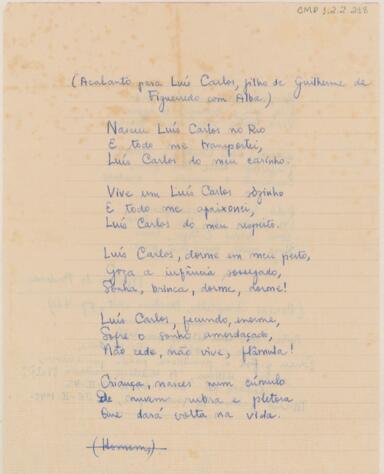 CMD 1.2.2.218
(Acalanto para Luís Carlos, filho de Guilherme de
Figueiredo com Alba.)
Nasceu Luís Carlos no Rio
E todo me transportei,
Luís Carlos do meu carinho.
Vive um Luís Carlos sòzinho
E todo me apaixonei,
Luís Carlos do meu respeito.
Luís Carlos, dorme em meu peito,
Goza a infância sossegado,
Sonha, brinca, dorme, dorme!
Luís Carlos, fecundo, enorme,
Sofre o sonho amordaçado,
Não cede, não vive, flâmula!
Criança, nasces num cúmulo
De nuvem rubra e pletora
Que dará volta na vida.
(Homem,)